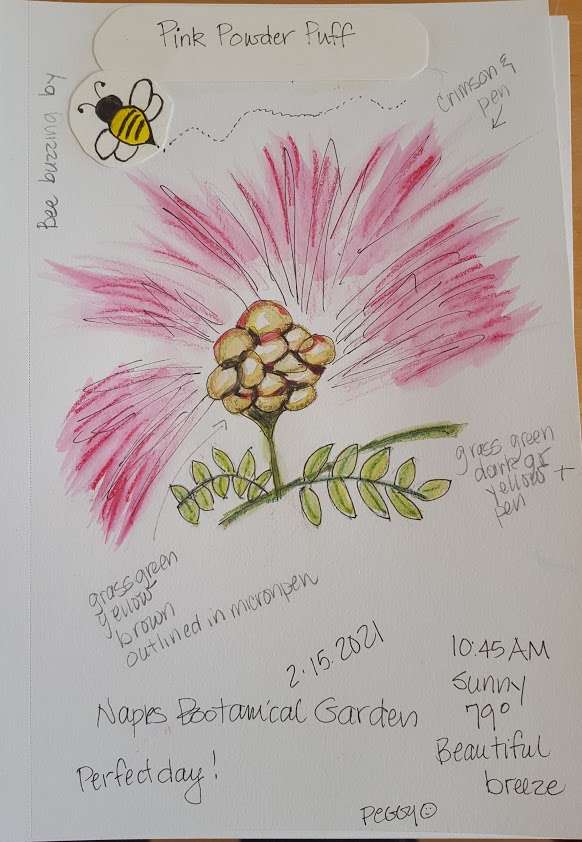 Pink Powder Puff
Bee buzzing by
Crimson &
pen
grass green
dark gr
yellow +
pen
grass green
yellow
brown
outlined in micron pen
2.15.2021
10:45 AM
Sunny
79°
Beautiful
breeze
Naples Bootanical Garden
Perfect day!
Peggy☺